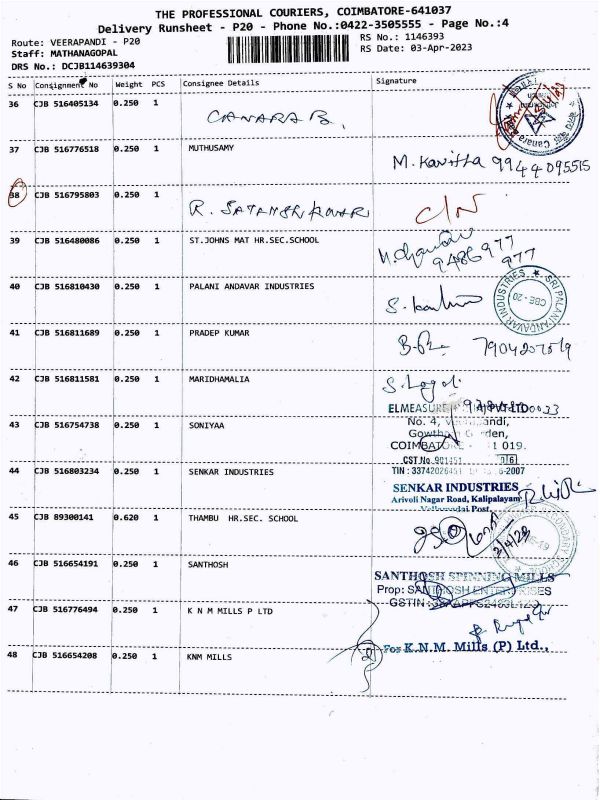 THE PROFESSIONAL COURIERS, COIMBATORE-641037
Delivery Runsheet - P20 - Phone No.:0422-3505555 - Page No.:4
Route: VEERAPANDI - P20
Staff: MATHANAGOPAL
DRS No.: DCJB114639304
RS No.: 1146393
RS Date: 03-Apr-2023
S No Consignment No Weight PCS Consignee Details Signature
36 CJB 516405134 0.250 1 CANARA B.
37 CJB 516776518 0.250 1 MUTHUSAMY M. Kavitta 9944095515
38 CJB 516795803 0.250 1 C/N
39 CJB 516480086 0.250 1 ST.JOHNS MAT HR.SEC.SCHOOL
9486977
977
40 CJB 516810430 0.250 1 PALANI ANDAVAR INDUSTRIES
SRI PALANI ANDAVAR INDUSTRIES
CBE - 20
41 CJB 516811689 0.250 1 PRADEP KUMAR
42 CJB 516811581 0.250 1 MARIDHAMALIA
ELMEASURE PVT LTD
43 CJB 516754738 0.250 1 SONIYAA
No. 4,
COIMBATORE 019.
CST No. 901451
44 CJB 516803234 0.250 1 SENKAR INDUSTRIES
SENKAR INDUSTRIES
Arivoli Nagar Road, Kalipalayam
Post,
45 CJB 89300141 0.620 1 THAMBU HR.SEC. SCHOOL
46 CJB 516654191 0.250 1 SANTHOSH
SANTHOSH SPINNING MILLS
Prop: SANTHOSH ENTERPRISES
47 CJB 516776494 0.250 1 K N M MILLS P LTD
For K.N.M. Mills (P) Ltd.,
48 CJB 516654208 0.250 1 KNM MILLS